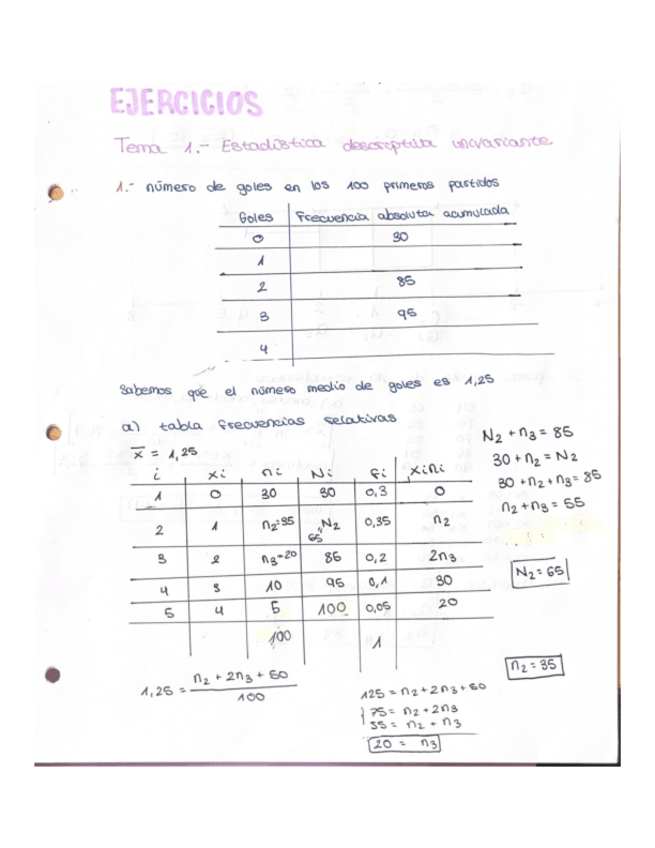 EJERCICIOS
Tema 1.- Estadística descriptiva univariante
1.- número de goles en los 100 primeros partidos
Goles Frecuencia absoluta acumulada
0 30
1
2 85
3 95
4
Sabemos que el número medio de goles es 1,25
a) tabla frecuencias relativas
x̄ = 1,25
i xi ni Ni fi xini
1 0 30 30 0,3 0
2 1 n2=35 N2 65 0,35 n2
3 2 n3=20 85 0,2 2n3
4 3 10 95 0,1 30
5 4 5 100 0,05 20
100 1
N2 + n3 = 85
30 + n2 = N2
30 + n2 + n3 = 85
n2 + n3 = 55
N2 = 65
n2 = 35
1,25 = n2 + 2n3 + 50 / 100
125 = n2 + 2n3 + 50
75 = n2 + 2n3
55 = n2 + n3
20 = n3